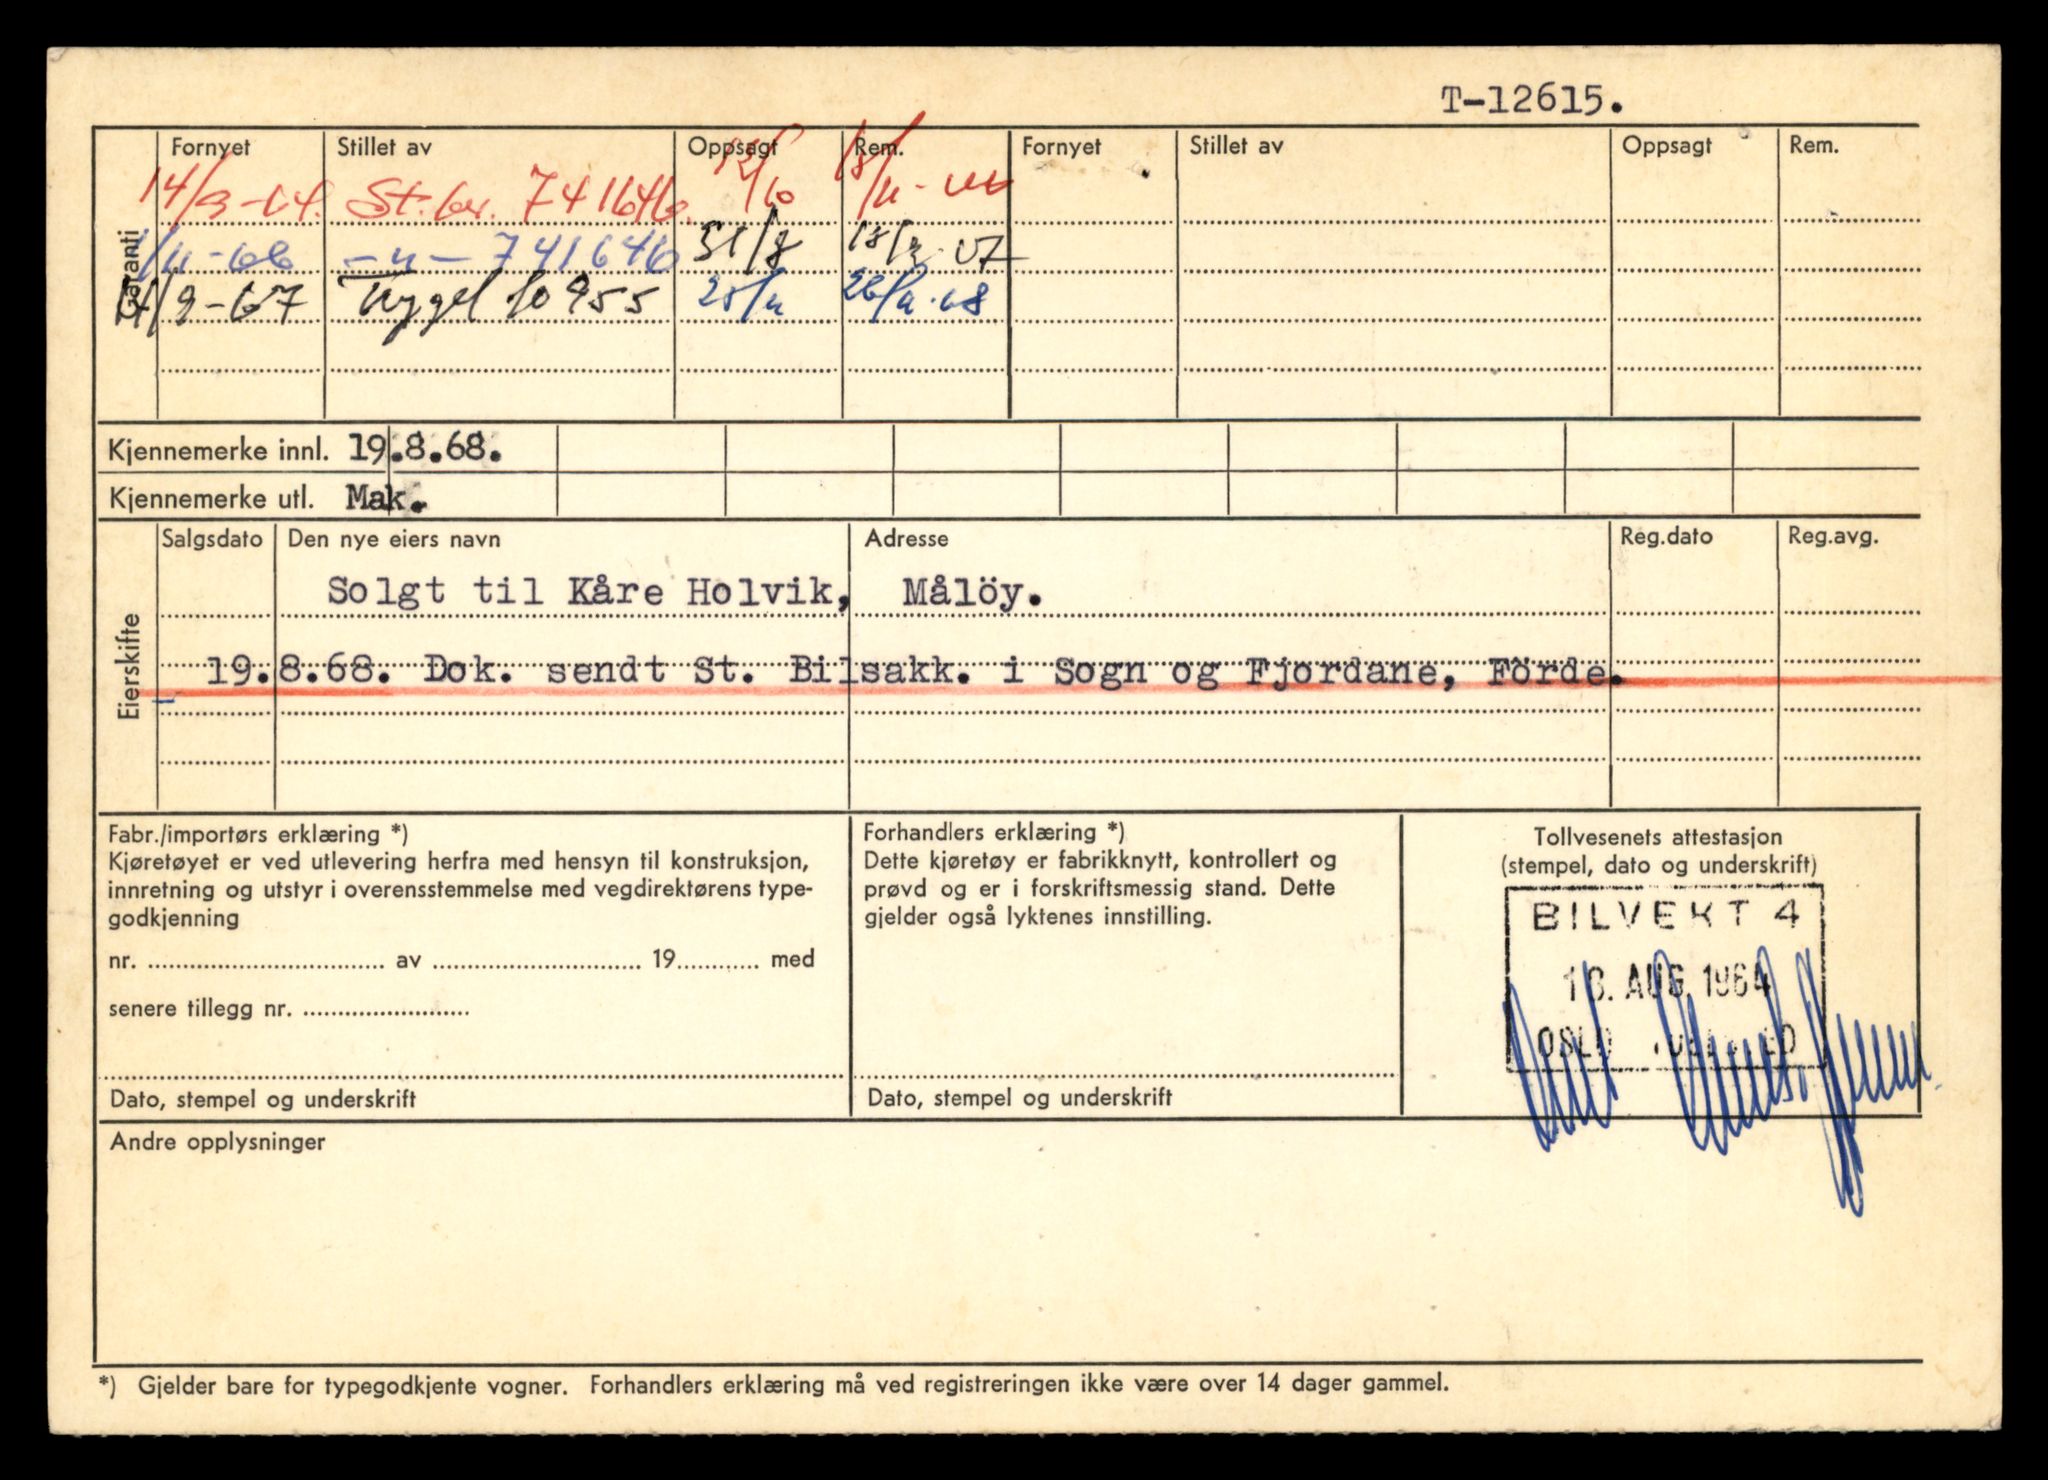 T-12615.
Garanti
Fornyet Stillet av Oppsagt Rem. Fornyet Stillet av Oppsagt Rem.
14/9-64. St.br. 741646. 18/11-66
1/11-66 -"- 741646 31/8
14/9-67 Trygd 10955 25/11 26/11.68
Kjennemerke innl. 19.8.68.
Kjennemerke utl. Mak.
Eierskifte
Salgsdato Den nye eiers navn Adresse Reg.dato Reg.avg.
Solgt til Kåre Holvik, Målöy.
19.8.68. Dok. sendt St. Bilsakk. i Sogn og Fjordane, Förde.
Fabr./importørs erklæring *)
Kjøretøyet er ved utlevering herfra med hensyn til konstruksjon,
innretning og utstyr i overensstemmelse med vegdirektørens type-
godkjenning
nr. av 19 med
senere tillegg nr.
Dato, stempel og underskrift
Forhandlers erklæring *)
Dette kjøretøy er fabrikknytt, kontrollert og
prøvd og er i forskriftsmessig stand. Dette
gjelder også lyktenes innstilling.
Dato, stempel og underskrift
Tollvesenets attestasjon
(stempel, dato og underskrift)
BILVEKT 4
18. AUG. 1964
OSLO
Andre opplysninger
*) Gjelder bare for typegodkjente vogner. Forhandlers erklæring må ved registreringen ikke være over 14 dager gammel.